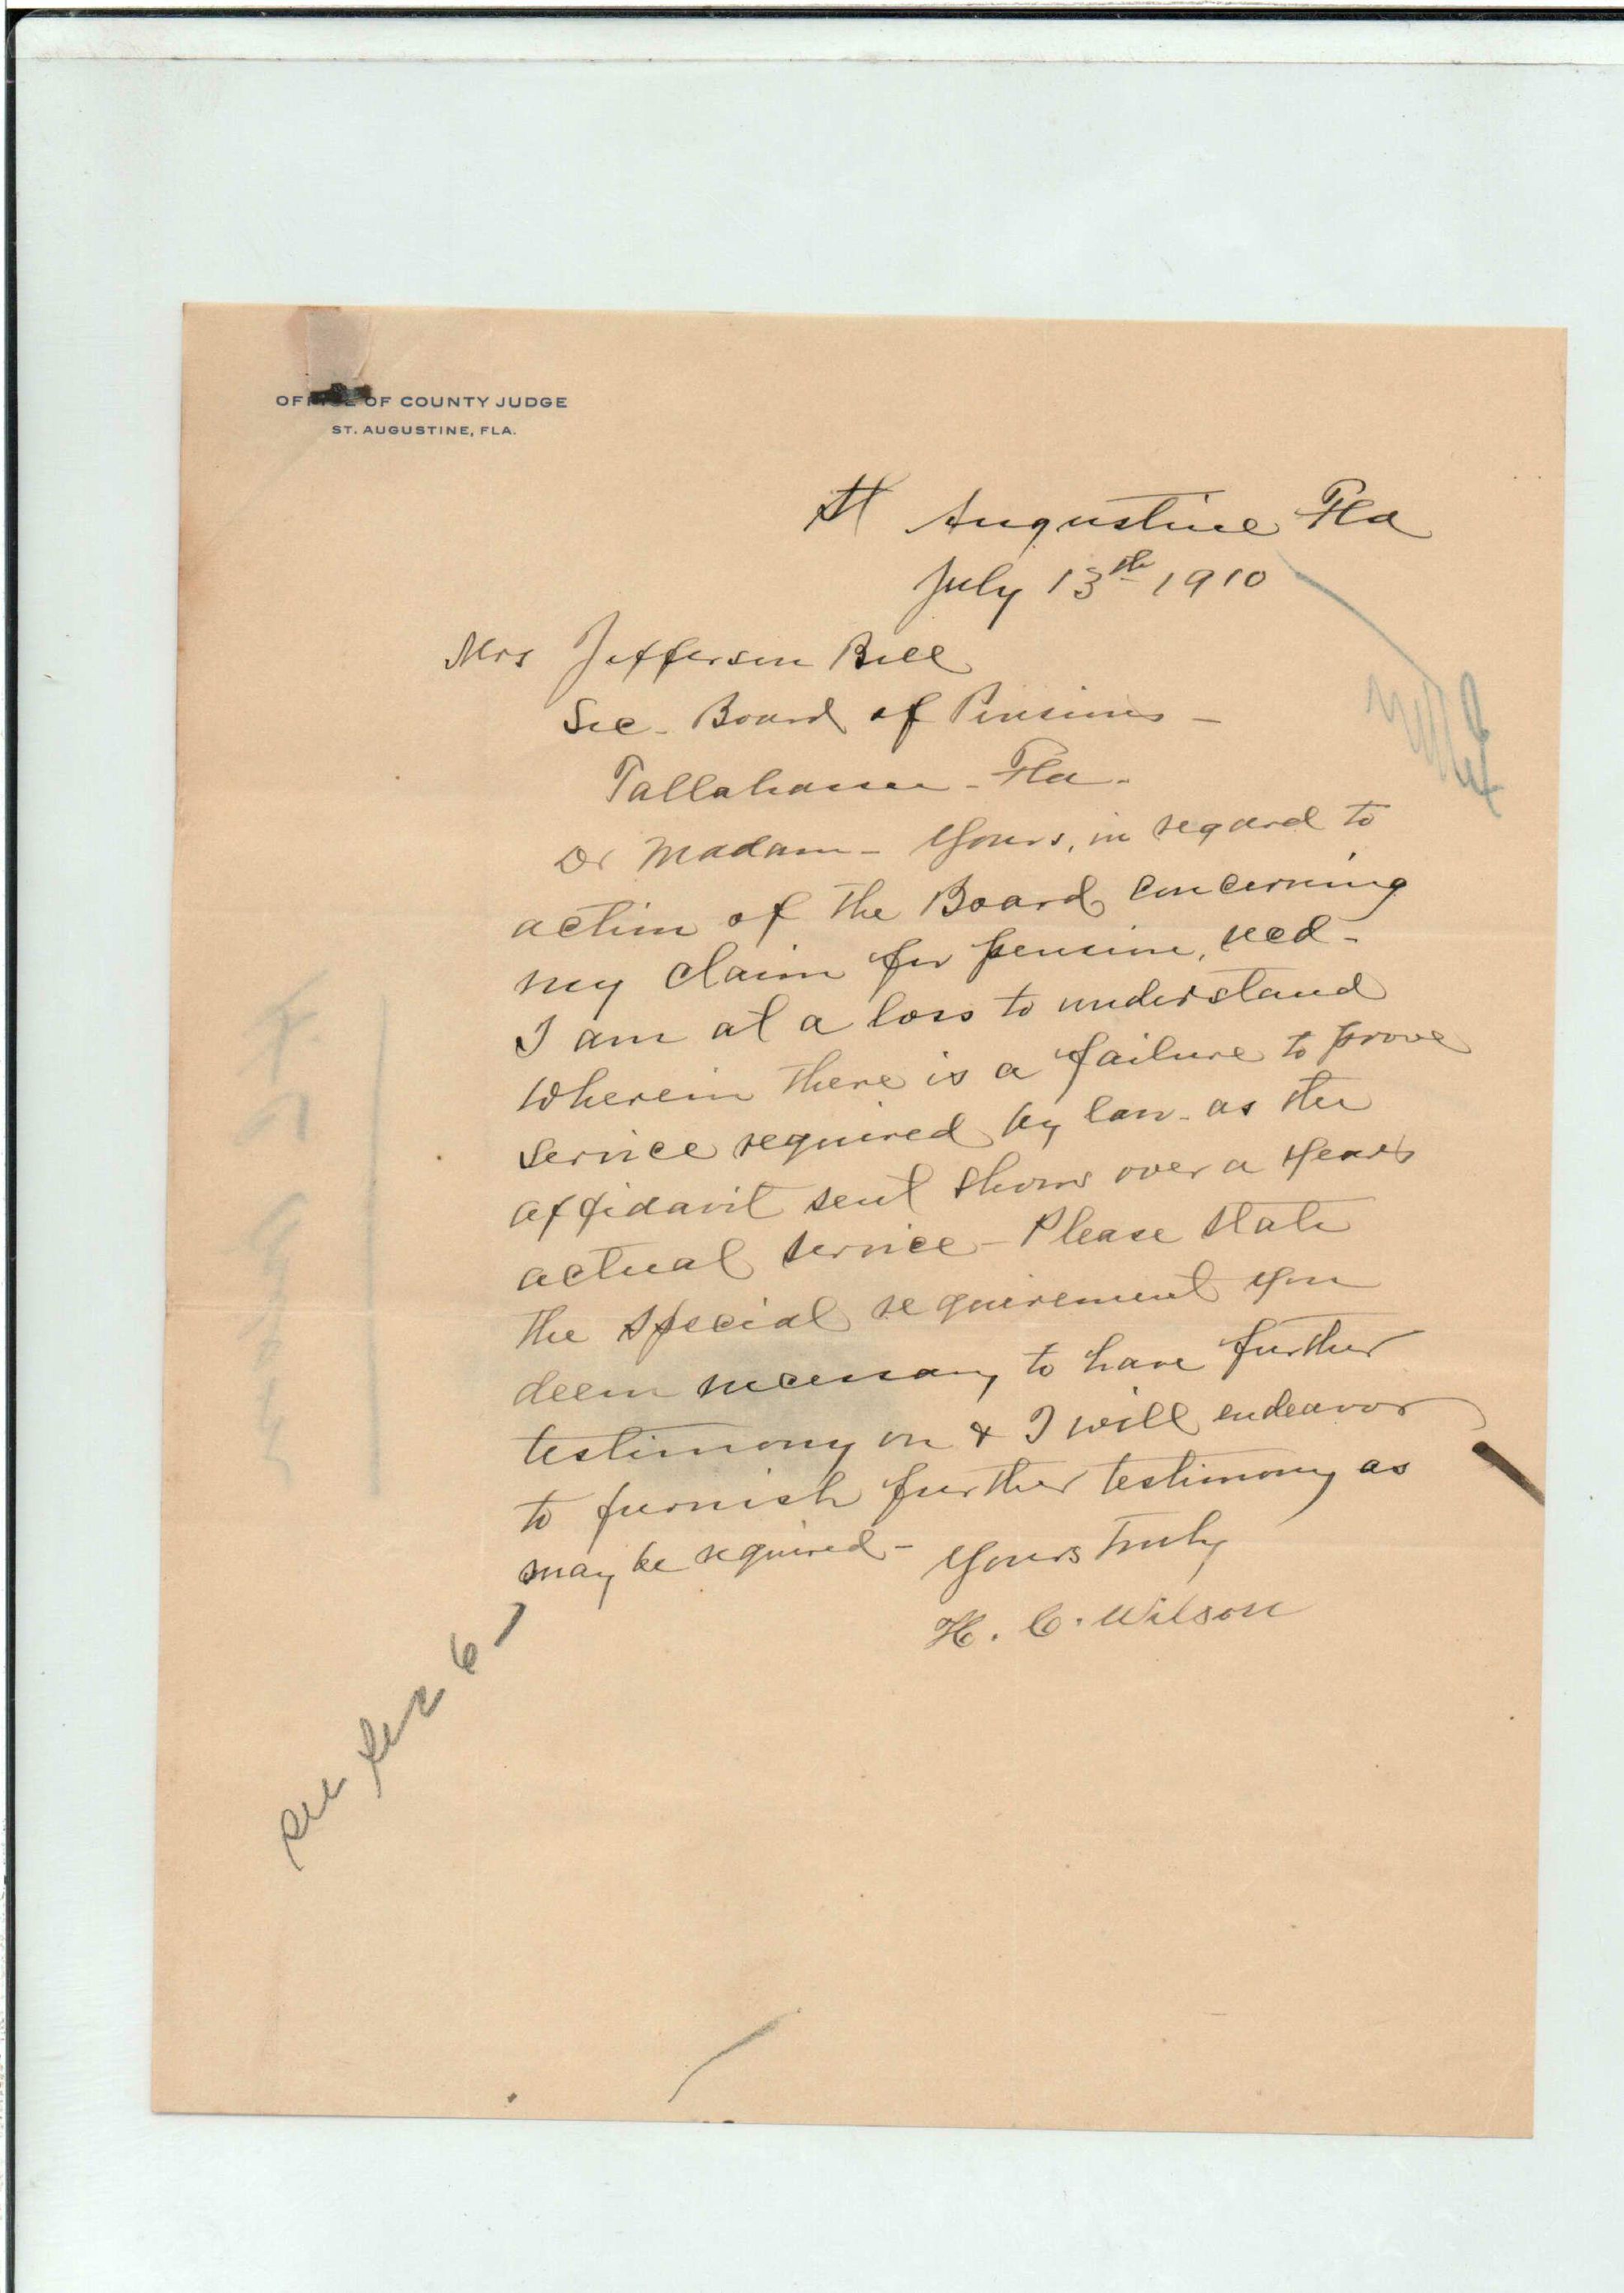 OFFICE OF COUNTY JUDGE
ST. AUGUSTINE, FLA.
St Augustine Fla
July 13th 1910
Mrs Jefferson Bell
Sec. Board of Pensions -
Tallahassee - Fla -
Dr Madam - Yours, in regard to
action of the Board concerning
my claim for pension, recd -
I am at a loss to understand
wherein there is a failure to prove
service required by law - as the
affidavit sent shows over a years
actual service - Please state
the special requirement you
deem necessary to have further
testimony on & I will endeavor
to furnish further testimony as
may be required -
Yours Truly
H. C. Wilson
see
6 -